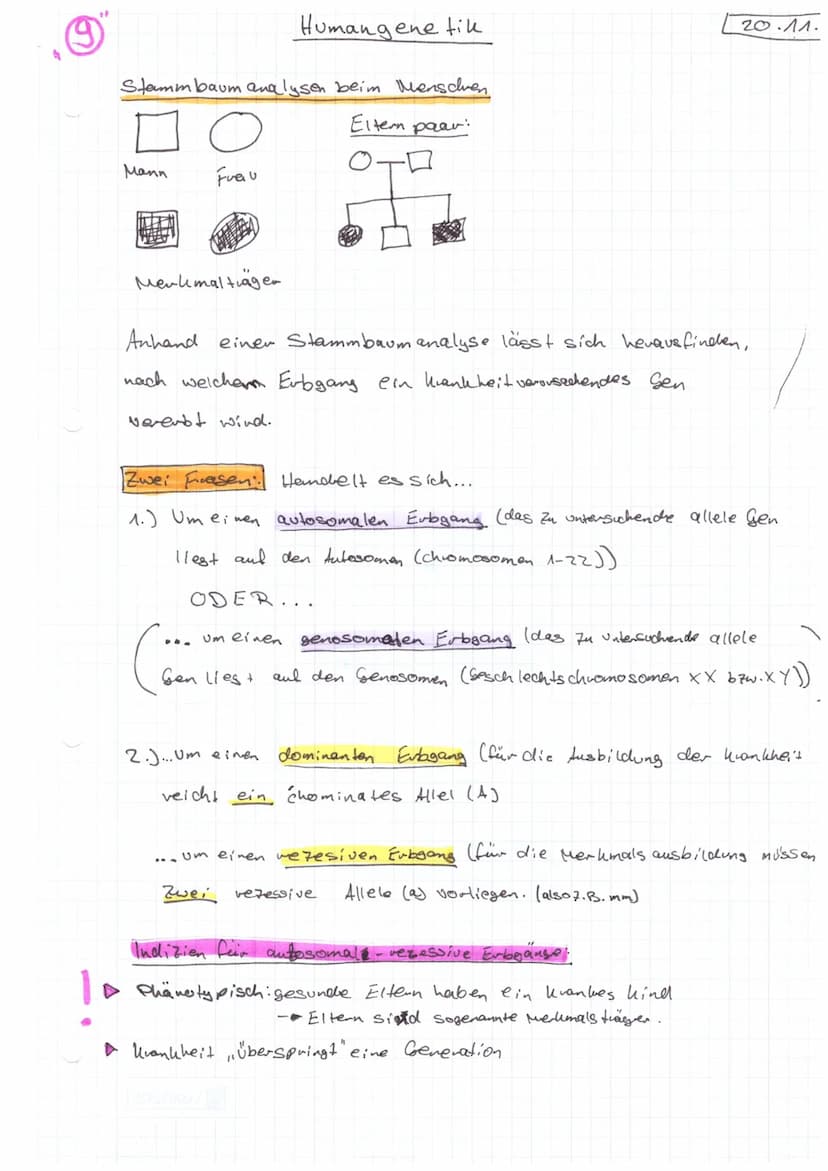 „9"
Humangenetik
20.11.
Stammbaumanalysen beim Menschen
Elternpaar:
Mann
Frau
Merkmalträger
Anhand einer Stammbaumanalyse lässt sich herausfinden,
nach welchem Erbgang ein krankheitverursachendes Gen
vererbt wird.
Zwei Fragen: Handelt es sich...
1.) Um einen autosomalen Erbgang (das zu untersuchende allele Gen
liegt auf den Autosomen (Chromosomen 1-22))
ODER...
... um einen genosomalen Erbgang (das zu untersuchende allele
Gen liegt auf den Genosomen (Geschlechtschromosomen XX bzw. XY))
2.)...Um einen dominanten Erbgang (für die Ausbildung der Krankheit
reicht ein Allel (A)
... um einen rezesiven Erbgang (für die Merkmalsausbildung müssen
zwei rezessive Allele (a) vorliegen. (also z.B. mm)
Indizien für autosomal-rezessive Erbgänge:
! Phänotypisch: gesunde Eltern haben ein krankes Kind
→ Eltern sind sogenannte Merkmalsträger.
Krankheit „überspringt" eine Generation